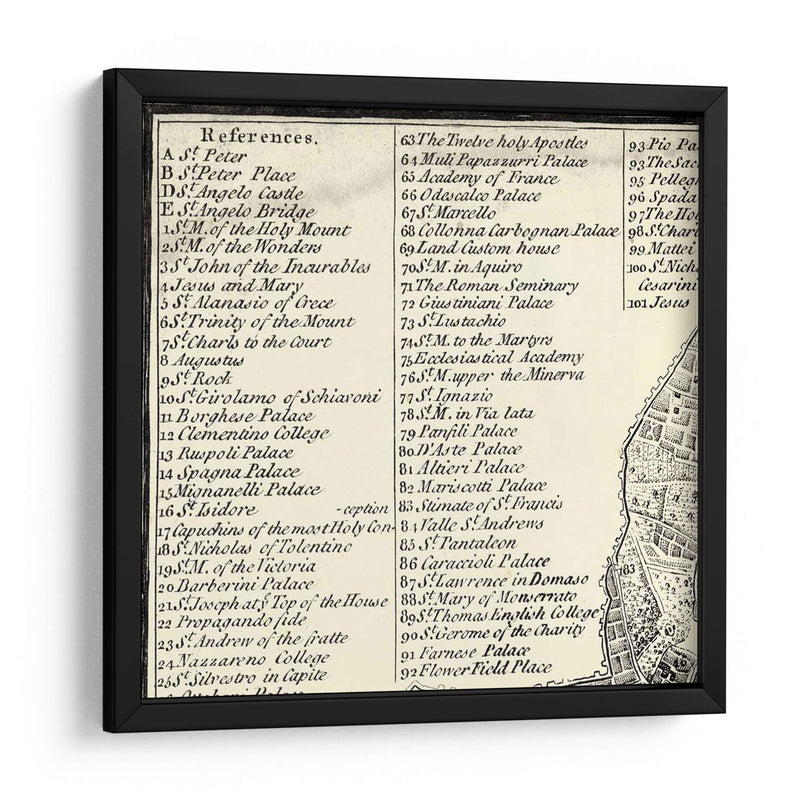 References.
A St. Peter
B St. Peter Place
D St. Angelo Castle
E St. Angelo Bridge
1 St. M. of the Holy Mount
2 St. M. of the Wonders
3 St. John of the Incurables
4 Jesus and Mary
5 St. Alanasio of Grece
6 St. Trinity of the Mount
7 St. Charls to the Court
8 Augustus
9 St. Rock
10 St. Girolamo of Schiavoni
11 Borghese Palace
12 Clementino College
13 Ruspoli Palace
14 Spagna Palace
15 Mignanelli Palace
16 St. Isidore -ception
17 Capuchins of the most Holy Con-
18 St. Nicholas of Tolentino
19 St. M. of the Victoria
20 Barberini Palace
21 St. Joseph at ye. Top of the House
22 Propagando fide
23 St. Andrew of the fratte
24 Nazzareno College
25 St. Silvestro in Capite
63 The Twelve holy Apostles
64 Muli Papazzurri Palace
65 Academy of France
66 Odescalco Palace
67 St. Marcello
68 Collonna Carbognan Palace
69 Land Custom house
70 St. M. in Aquiro
71 The Roman Seminary
72 Giustiniani Palace
73 St. Lustachio
74 St. M. to the Martyrs
75 Ecclesiastical Academy
76 St. M. upper the Minerva
77 St. Ignazio
78 St. M. in Via lata
79 Panfili Palace
80 D'Aste Palace
81 Altieri Palace
82 Mariscotti Palace
83 Stimate of St. Francis
84 Valle St. Andrews
85 St. Pantaleon
86 Caraccioli Palace
87 St. Lawrence in Domaso
88 St. Mary of Monserrato
89 St. Thomas English College
90 St. Gerome of the Charity
91 Farnese Palace
92 Flower Field Place
93 Pio Pa
93 The Sac
95 Pellegr
96 Spada
97 The Hol
98 St. Charl
99 Mattei
100 St. Nich
Cesarini
101 Jesus
183